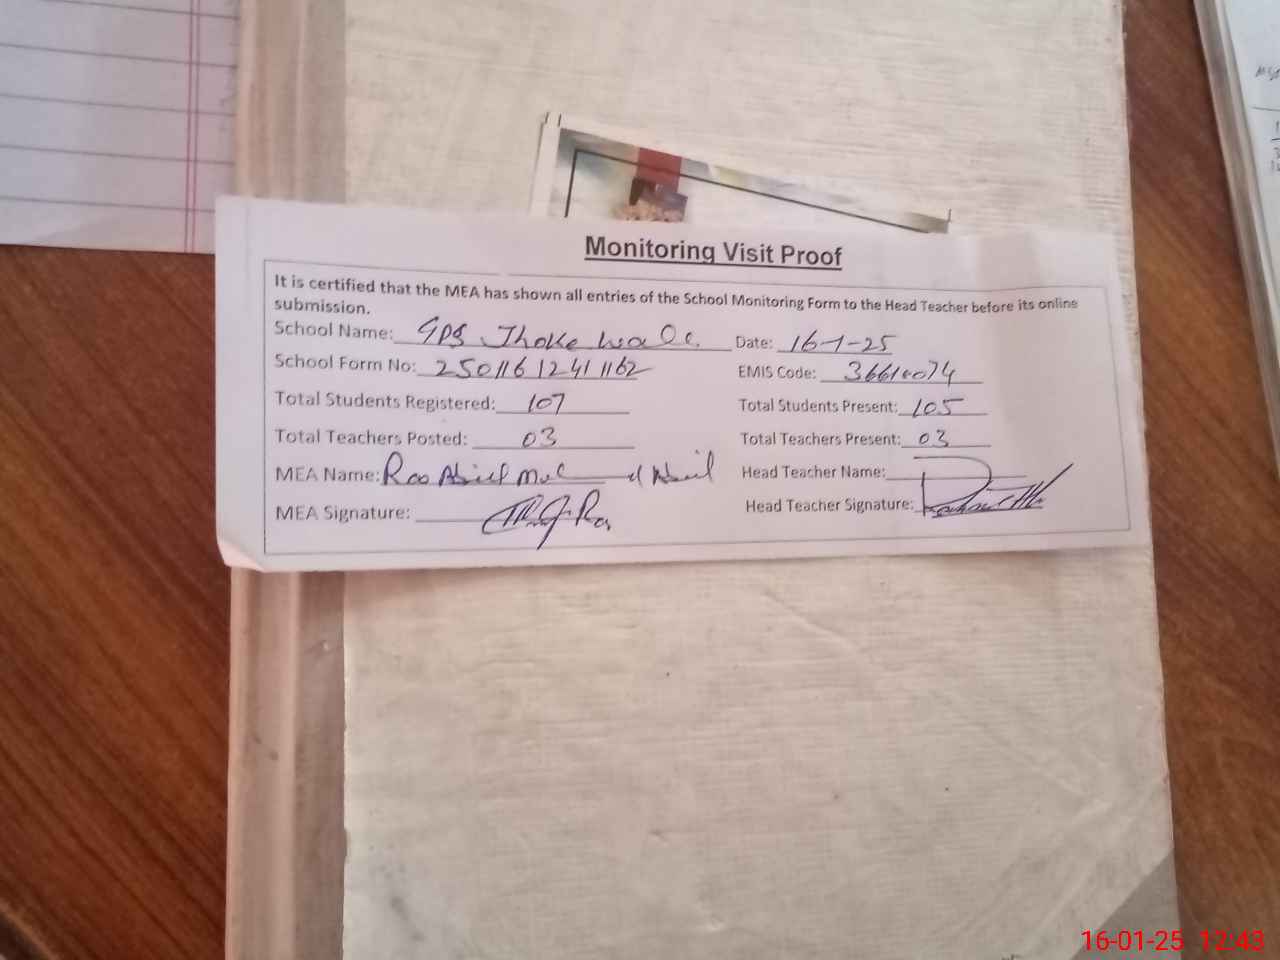 Monitoring Visit Proof
It is certified that the MEA has shown all entries of the School Monitoring Form to the Head Teacher before its online
submission.
School Name: GPS Jhoke wala Date: 16-1-25
School Form No: 2501161241162 EMIS Code: 36610074
Total Students Registered: 107 Total Students Present: 105
Total Teachers Posted: 03 Total Teachers Present: 03
MEA Name: Rao Head Teacher Name:
MEA Signature: Head Teacher Signature:
16-01-25 12:43